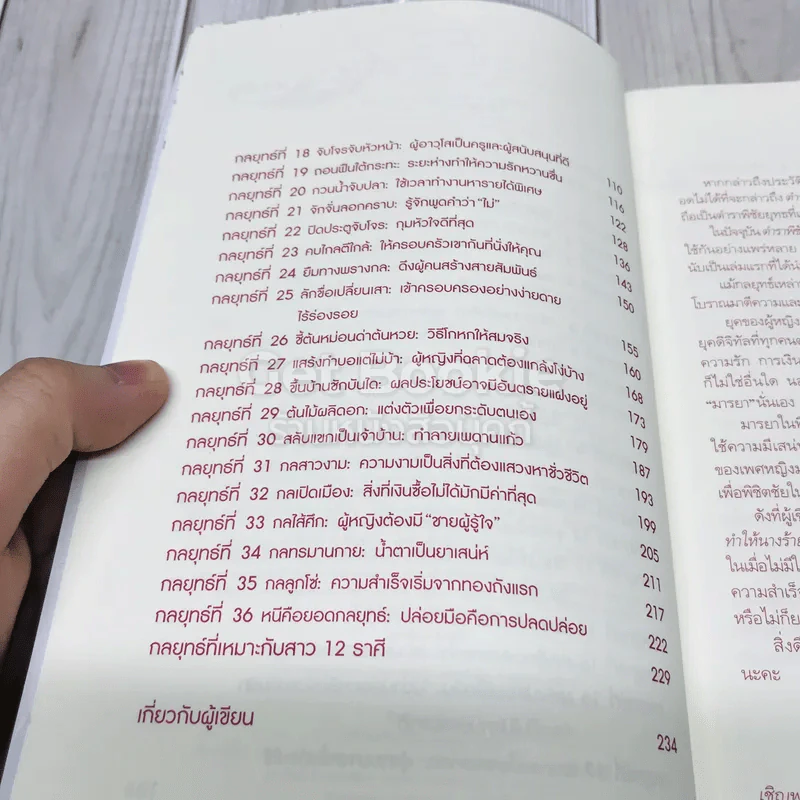 กลยุทธ์ที่ 18 จับโจรจับหัวหน้า: ผู้อาวุโสเป็นครูและผู้สนับสนุนที่ดี 110
กลยุทธ์ที่ 19 ถอนฟืนใต้กระทะ: ระยะห่างทำให้ความรักหวานชื่น 116
กลยุทธ์ที่ 20 กวนน้ำจับปลา: ใช้เวลาทำงานหารายได้พิเศษ 122
กลยุทธ์ที่ 21 จักจั่นลอกคราบ: รู้จักพูดคำว่า "ไม่" 128
กลยุทธ์ที่ 22 ปิดประตูจับโจร: กุมหัวใจดีที่สุด 136
กลยุทธ์ที่ 23 คบไกลตีใกล้: ให้ครอบครัวเขากันที่นั่งให้คุณ 143
กลยุทธ์ที่ 24 ยืมทางพรางกล: ดึงผู้คนสร้างสายสัมพันธ์ 150
กลยุทธ์ที่ 25 ลักขื่อเปลี่ยนเสา: เข้าครอบครองอย่างง่ายดาย
ไร้ร่องรอย 155
กลยุทธ์ที่ 26 ชี้ต้นหม่อนด่าต้นหวย: วิธีโกหกให้สมจริง 160
กลยุทธ์ที่ 27 แสร้งทำบอแต่ไม่บ้า: ผู้หญิงที่ฉลาดต้องแกล้งโง่บ้าง 168
กลยุทธ์ที่ 28 ขึ้นบ้านชักบันได: ผลประโยชน์อาจมีอันตรายแฝงอยู่ 173
กลยุทธ์ที่ 29 ต้นไม้ผลิดอก: แต่งตัวเพื่อยกระดับตนเอง 179
กลยุทธ์ที่ 30 สลับแขกเป็นเจ้าบ้าน: ทำลายเพดานแก้ว 187
กลยุทธ์ที่ 31 กลสาวงาม: ความงามเป็นสิ่งที่ต้องแสวงหาชั่วชีวิต 193
กลยุทธ์ที่ 32 กลเปิดเมือง: สิ่งที่เงินซื้อไม่ได้มักมีค่าที่สุด 199
กลยุทธ์ที่ 33 กลไส้ศึก: ผู้หญิงต้องมี "ชายผู้รู้ใจ" 205
กลยุทธ์ที่ 34 กลทรมานกาย: น้ำตาเป็นยาเสน่ห์ 211
กลยุทธ์ที่ 35 กลลูกโซ่: ความสำเร็จเริ่มจากทองถังแรก 217
กลยุทธ์ที่ 36 หนีคือยอดกลยุทธ์: ปล่อยมือคือการปลดปล่อย 222
กลยุทธ์ที่เหมาะกับสาว 12 ราศี 229
เกี่ยวกับผู้เขียน 234
Get Bookie
ร้านหนังสือบุ๊คกี้
หากกล่าวถึงประวัติ
อดไม่ได้ที่จะกล่าวถึง ตำรา
ถือเป็นตำราพิชัยยุทธที่
ในปัจจุบัน ตำราพิชัย
ใช้กันอย่างแพร่หลาย
นับเป็นเล่มแรกที่ได้
แม้กลยุทธ์เหล่า
โบราณมาตีความและ
ยุคของผู้หญิง
ยุคดิจิทัลที่ทุกคน
ความรัก การเงิน
ก็ไม่ใช่อื่นใด
"มารยา" นั่นเอง
มารยาในพิ
ใช้ความมีเสน่ห์
ของเพศหญิง
เพื่อพิชิตชัยใน
ดังที่ผู้เขี
ทำให้นางร้าย
ในเมื่อไม่มีใ
ความสำเร็จ
หรือไม่ก็
สิ่งดี
นะคะ
เชิญ